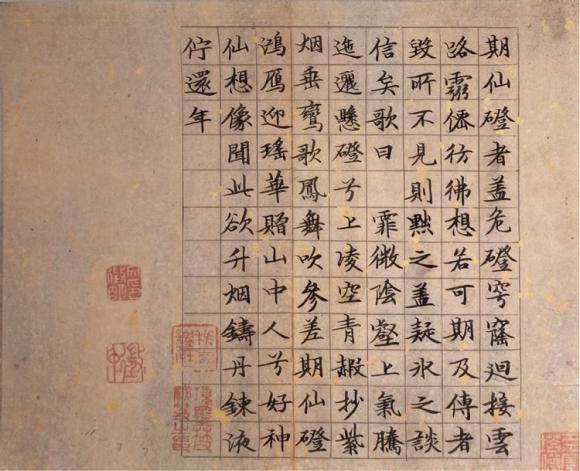 期仙磴者盖危磴穹窿迴接雲
路霛僊彷彿想若可期及傳者
毀所不見則黜之盖疑氷之談
信矣歌曰霏微陰壑上氣騰
迤邐懸磴兮上凌空青赮抄紫
烟垂鸞歌鳳舞吹參差期仙磴
鴻雁迎瑤華贈山中人兮好神
仙想像聞此欲升烟鑄丹鍊液
佇還年